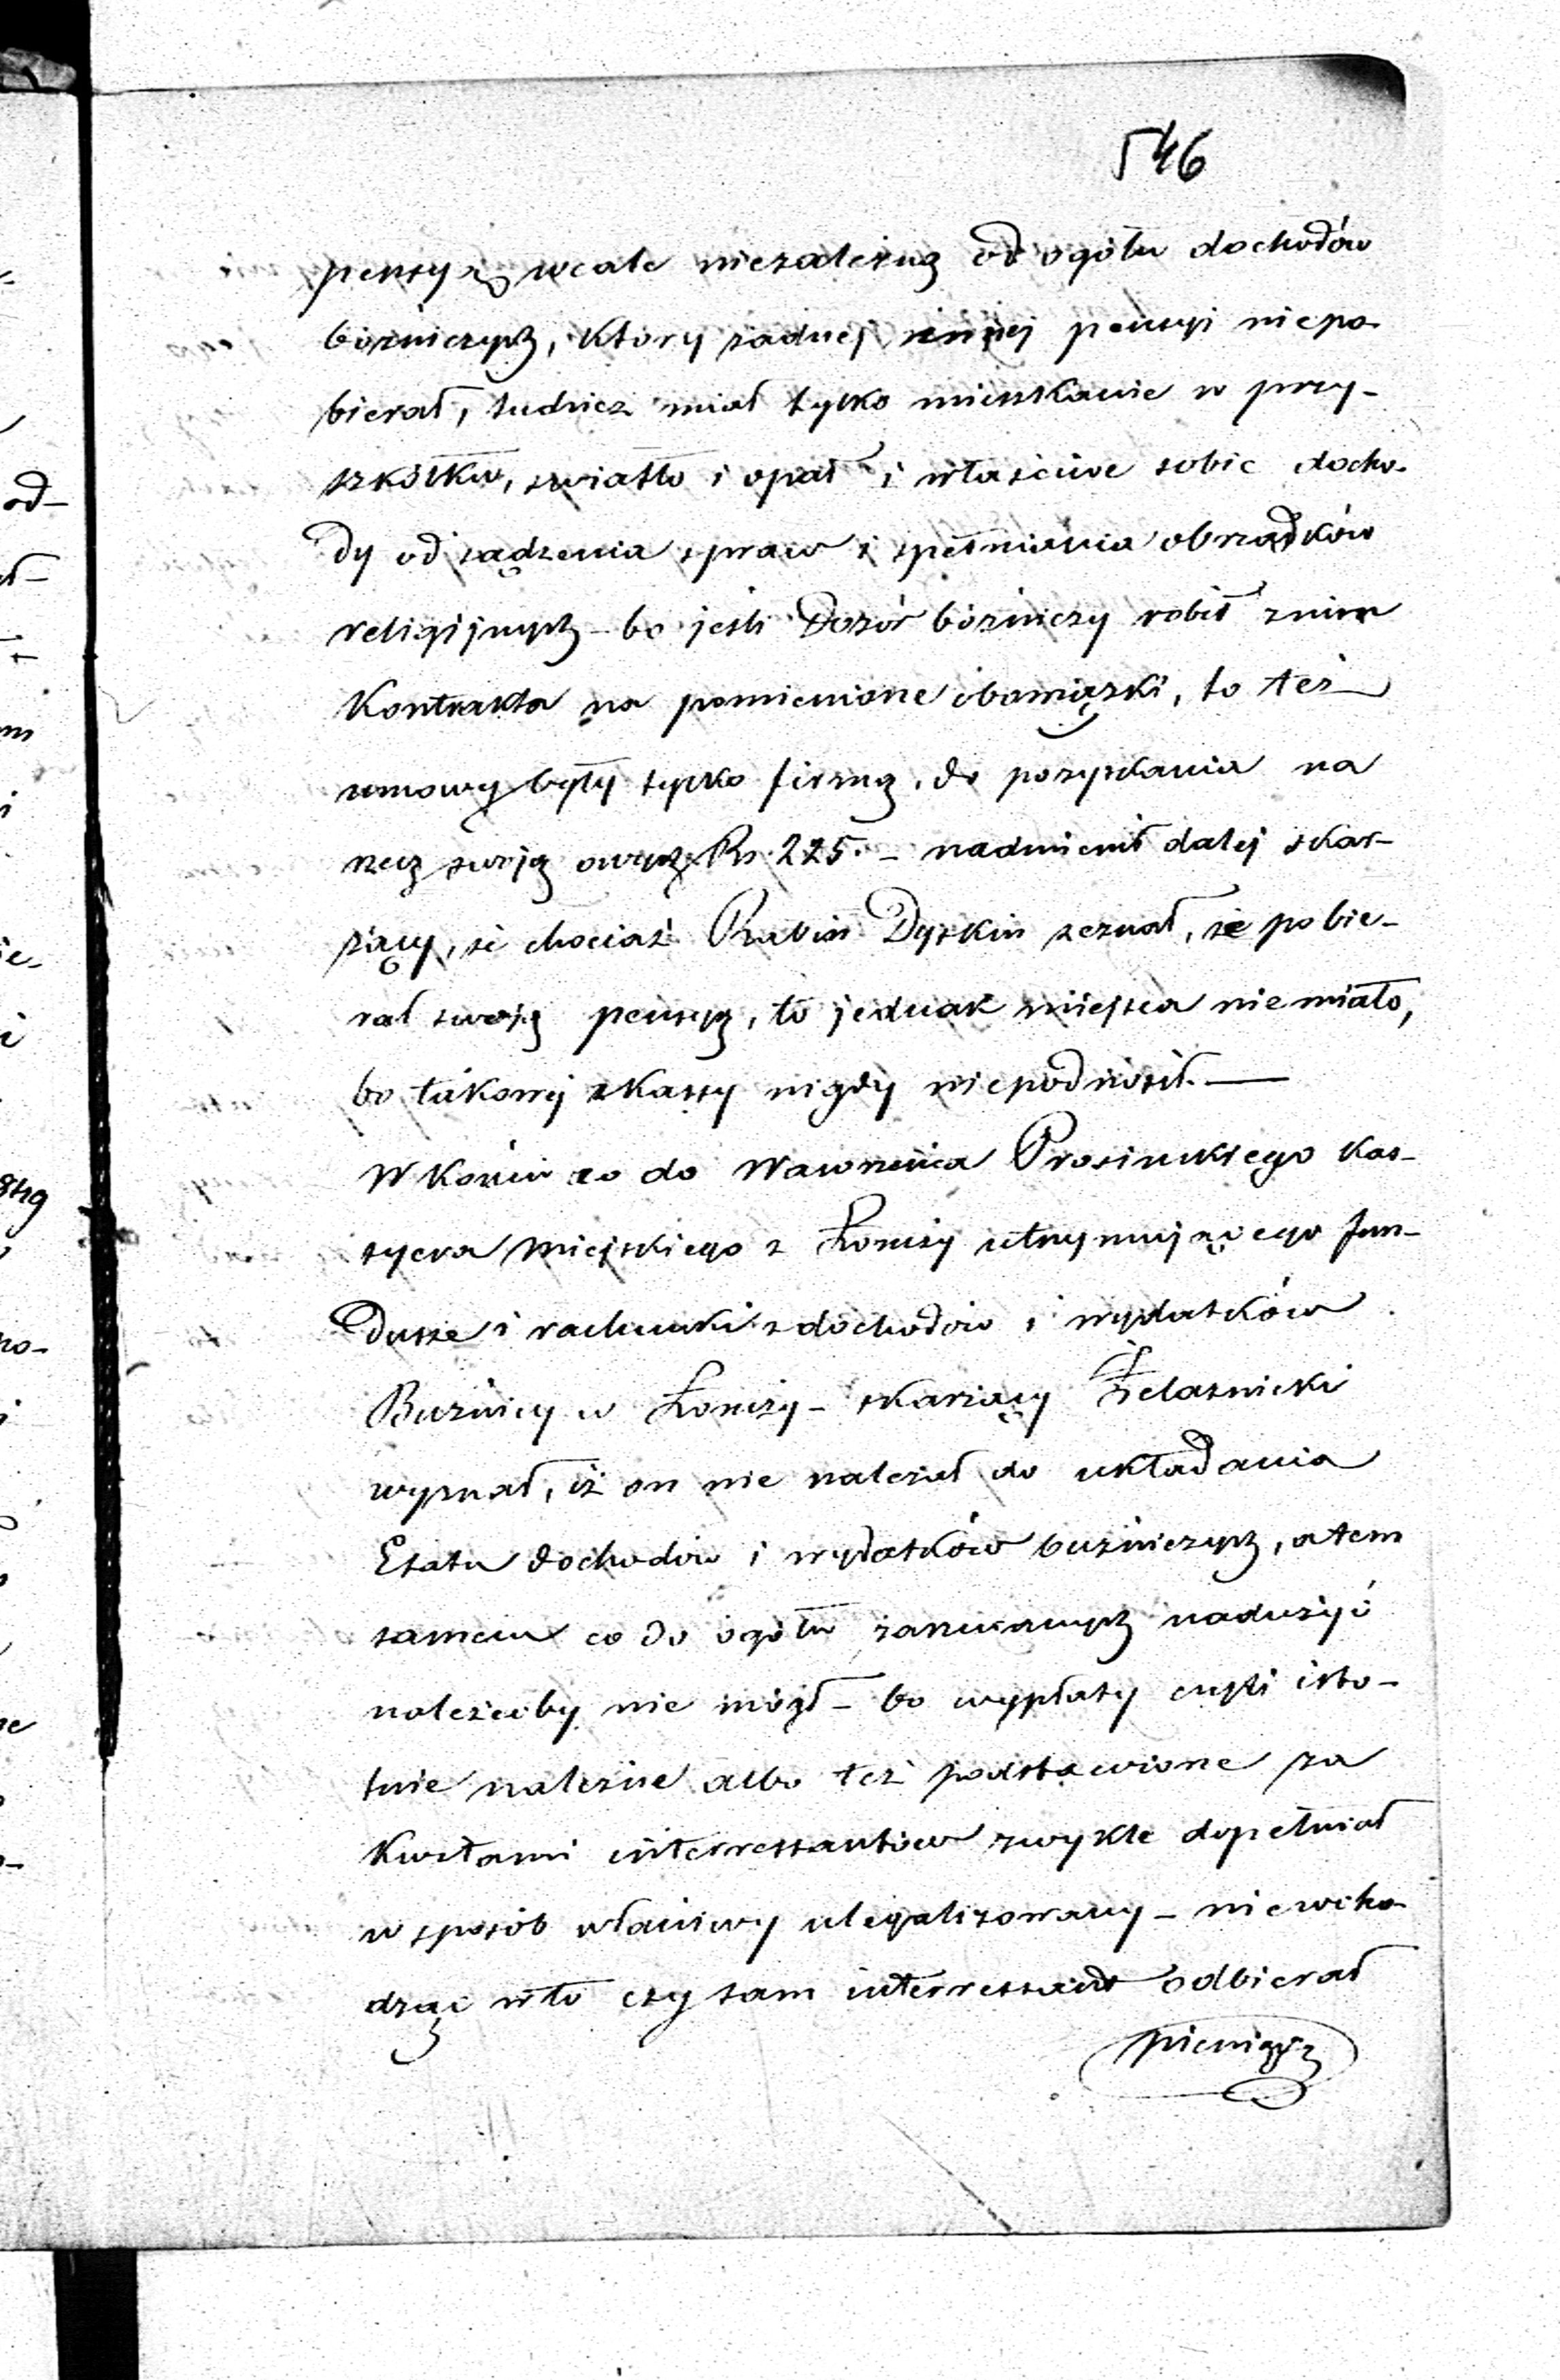 546
pensyą wcale niezależną od ogółu dochodów
bóżniczych, który żadnej innej pensyi niepo-
bierał, tudzież miał tylko mieszkanie w przy-
szkółku, swiatło i opał i właściwe sobie docho-
dy od sądzenia spraw i spełniania obrzadków
religijnych – bo jeśli Dozór bóżniczy robił znim
Kontrakta na pomienione obowiązki, to też
umowy były tylko firmą, do pozyskania na
rzecz swoją owych Rs. 225. – nadmienił dalej skar-
żący, że chociaż Rabin Dyskin zeznał, że pobie-
rał swoją pensyą, to jednak miejsca niemiało,
bo takowej zkassy nigdy niepodnosił. —
W końcu co do Wawrzeńca Prosinskiego kas-
syera Miejskiego z Łomży utrzymującego fun-
dusze i rachunki z dochodów i wydatków
Bużnicy w Łomży – skarżący Żelasnicki
wyznał, iż on nie należał do układania
Etatu dochodów i wydatków bużniczych, a tem
samem co do ogółu zarzucanych nadużyć
należećby nie mógł – bo wypłaty czyli isto-
tnie należne albo też podstawione za
Kwitami interressantów zwykle dopełniał
w sposób właściwy ulegalizowany – niewcho-
dząc wto czy sam interressant odbierał
pieniądze
od-
849